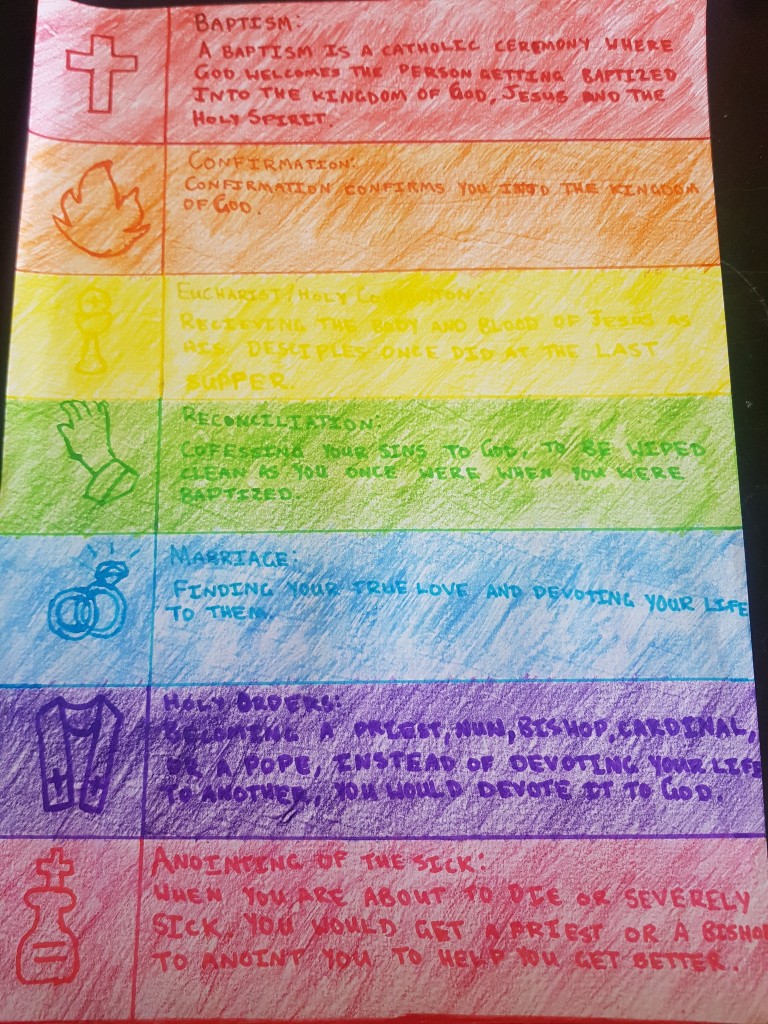 BAPTISM:
A BAPTISM IS A CATHOLIC CEREMONY WHERE
GOD WELCOMES THE PERSON GETTING BAPTIZED
INTO THE KINGDOM OF GOD, JESUS AND THE
HOLY SPIRIT.
CONFIRMATION:
CONFIRMATION CONFIRMS YOU INTO THE KINGDOM
OF GOD.
EUCHARIST/HOLY COMMUNION:
RECIEVING THE BODY AND BLOOD OF JESUS AS
HIS DESCIPLES ONCE DID AT THE LAST
SUPPER.
RECONCILIATION:
COFESSING YOUR SINS TO GOD, TO BE WIPED
CLEAN AS YOU ONCE WERE WHEN YOU WERE
BAPTIZED.
MARRIAGE:
FINDING YOUR TRUE LOVE AND DEVOTING YOUR LIFE
TO THEM.
HOLY ORDERS:
BECOMING A PRIEST, NUN, BISHOP, CARDINAL,
OR A POPE, INSTEAD OF DEVOTING YOUR LIFE
TO ANOTHER, YOU WOULD DEVOTE IT TO GOD.
ANOINTING OF THE SICK:
WHEN YOU ARE ABOUT TO DIE OR SEVERELY
SICK, YOU WOULD GET A PRIEST OR A BISHOP
TO ANOINT YOU TO HELP YOU GET BETTER.